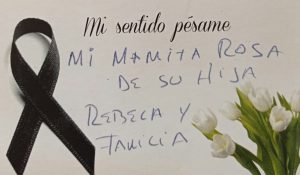 Mi sentido pésame
MI MAMITA ROSA
DE SU HIJA
REBECA Y
FAMILIA